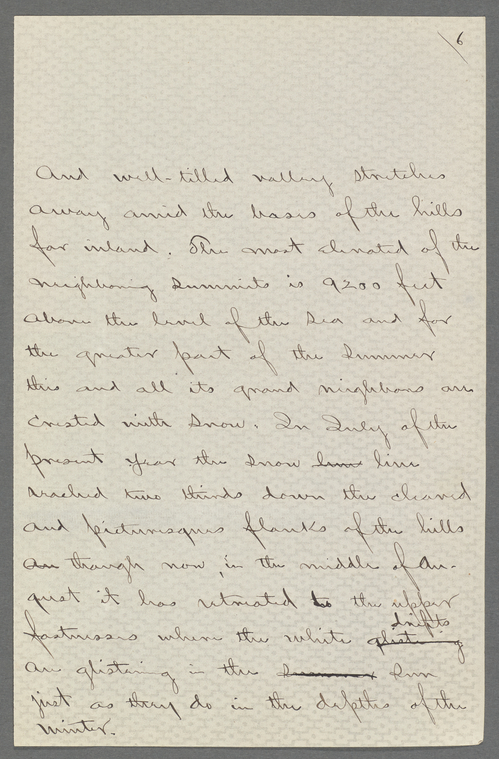 6
And well-tilled valley stretches
away amid the bases of the hills
far inland. The most elevated of the
neighboring summits is 9200 feet
above the level of the sea and for
the greater part of the summer
this and all its grand neighbors are
crested with snow. In July of the
present year the snow line
reached two thirds down the cleaved
and picturesque flanks of the hills
though now, in the middle of Au-
gust it has retreated to the upper
drifts
fastnesses where the white glistening
are glistening in the Summer sun
just as they do in the depths of the
winter.